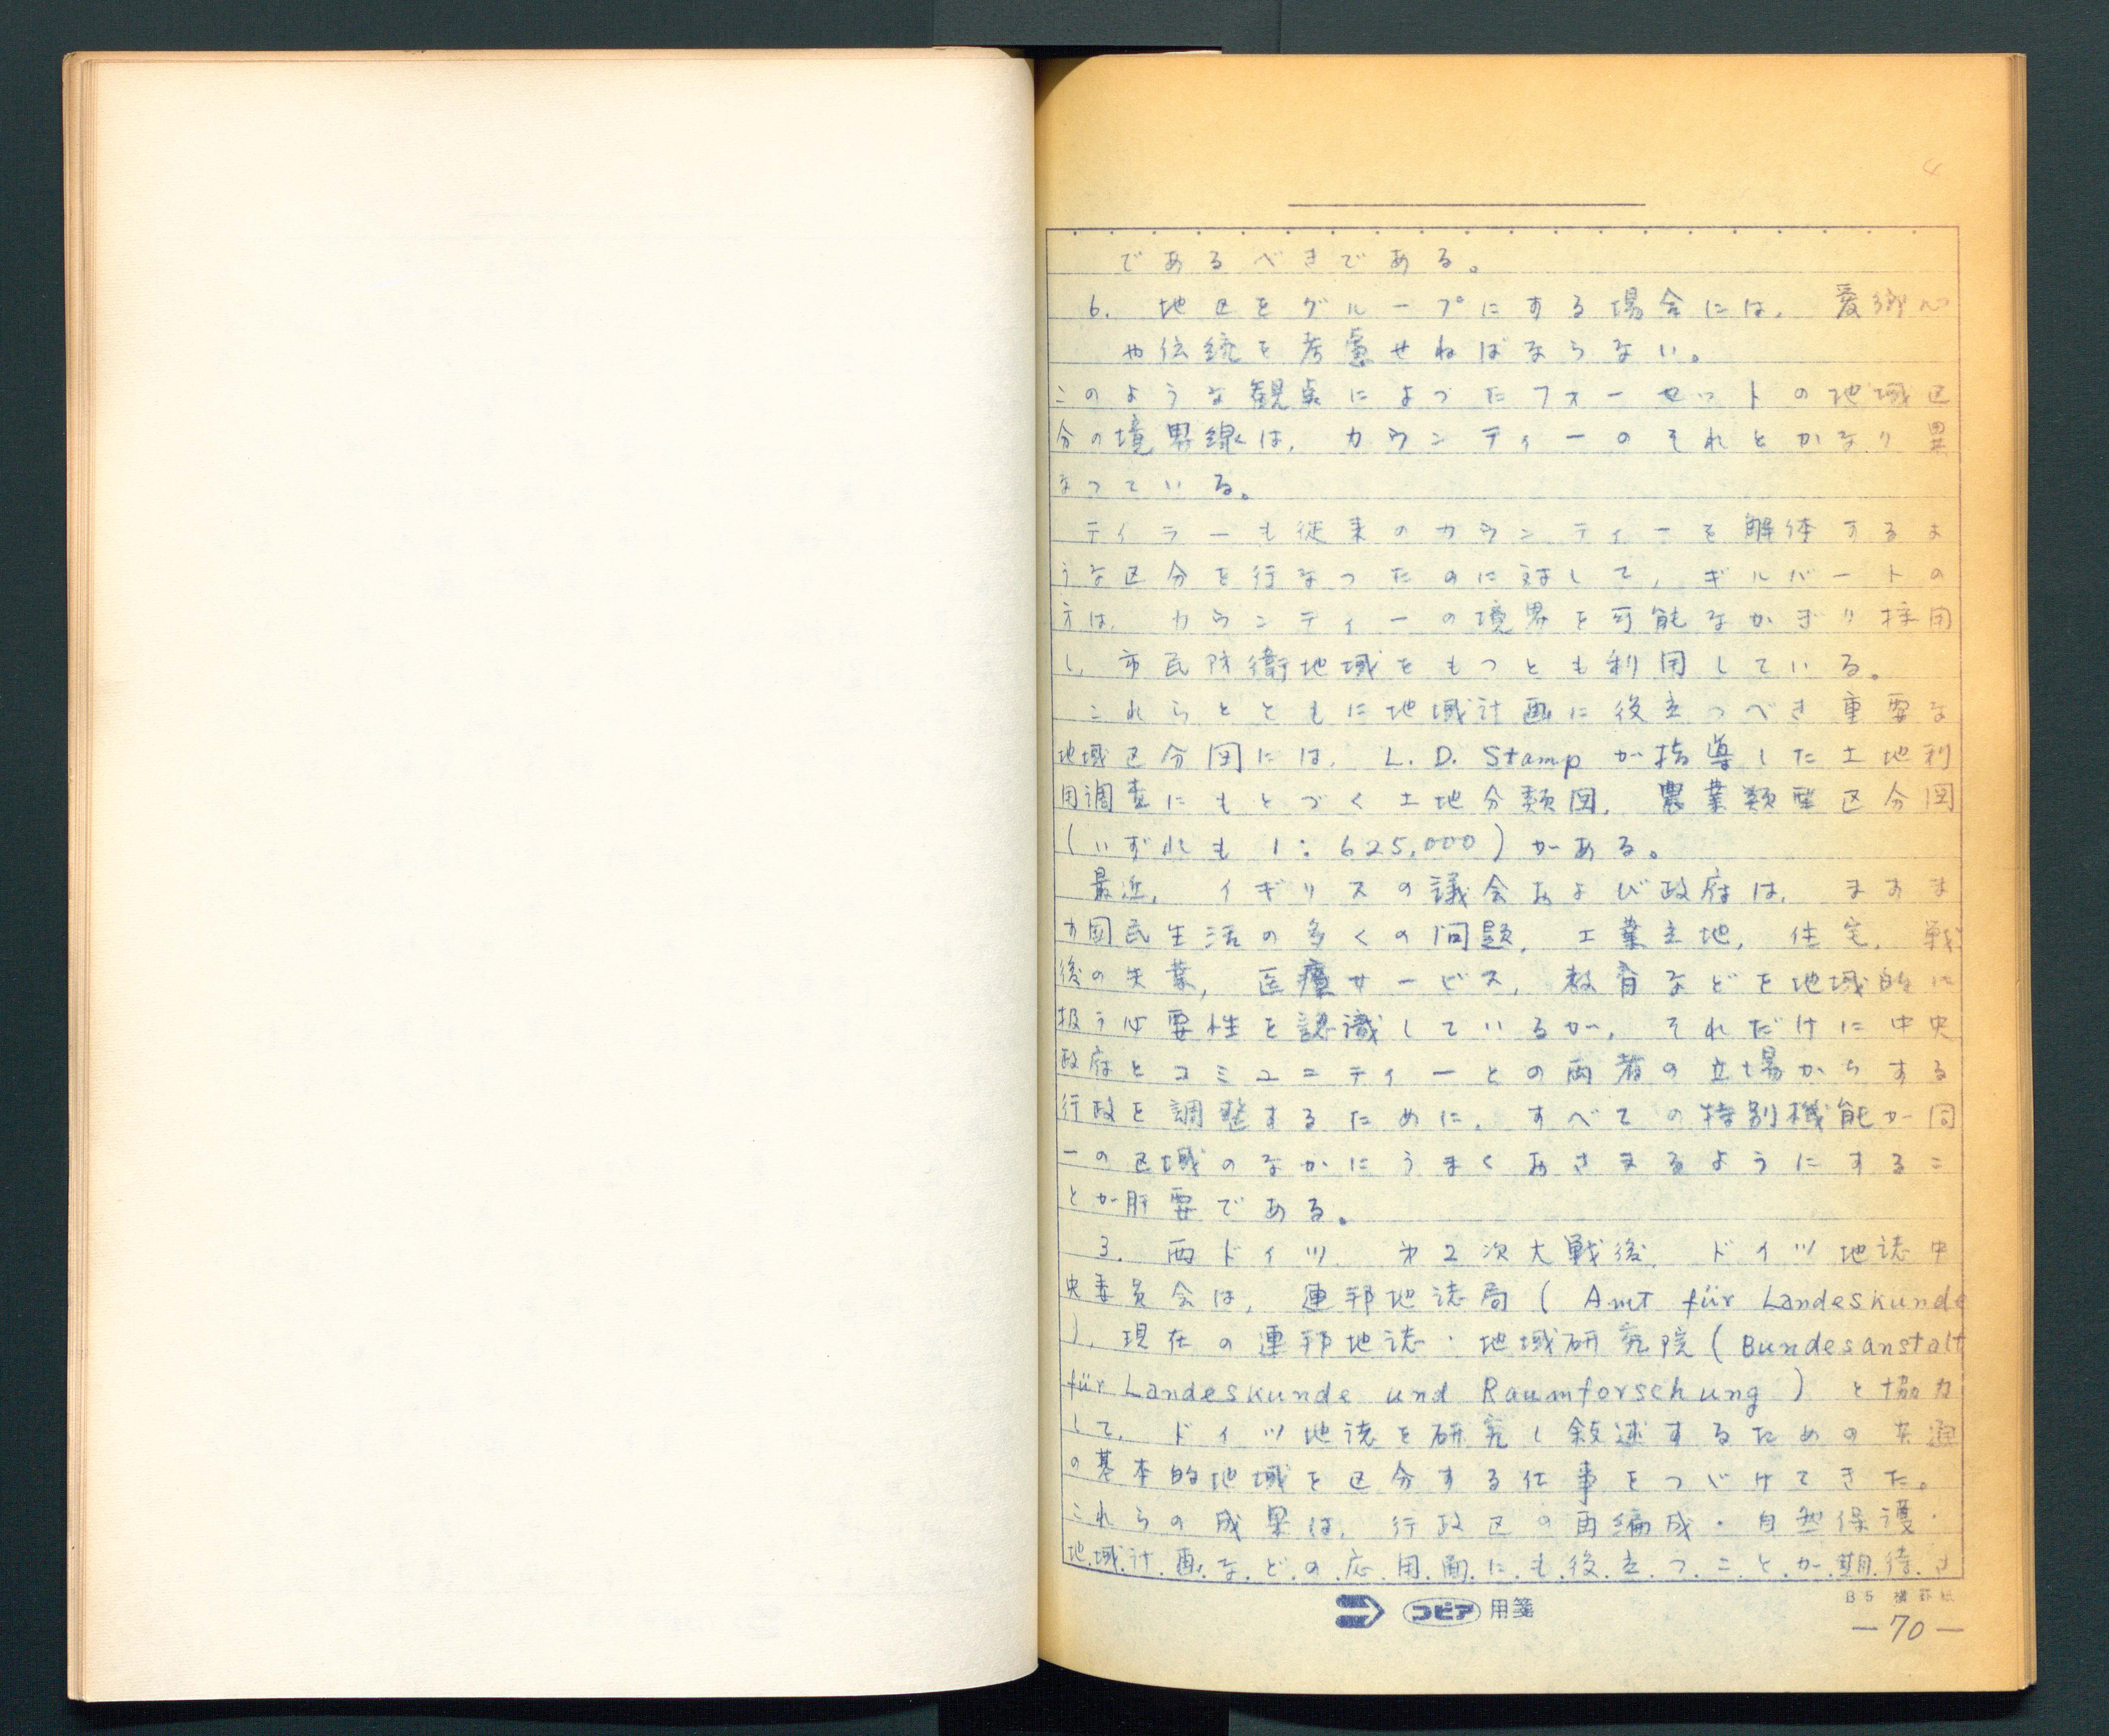 であるべきである。
6. 地区をグループにする場合には, 愛郷心
や伝統を考慮せねばならない。
このような観点によつたフォーセットの地域区
分の境界線は, カウンティーのそれとかなり異
なつている。
テイラーも従来のカウンティーを解体するよ
うな区分を行なつたのに対して, ギルバートの
方は, カウンティーの境界を可能なかぎり採用
し, 市民防衛地域をもつとも利用している。
これらとともに地域計画に役立つべき重要な
地域区分図には, L. D. Stamp が指導した土地利
用調査にもとづく土地分類図, 農業類型区分図
(いずれも 1:625,000) がある。
最近, イギリスの議会および政府は, ますま
す国民生活の多くの問題, 工業立地, 住宅, 戦
後の失業, 医療サービス, 教育などを地域的に
扱う必要性を認識しているが, それだけに中央
政府とコミュニティーとの両者の立場からする
行政を調整するために, すべての特別機能が同
一の区域のなかにうまくおさまるようにするこ
とが肝要である。
3. 西ドイツ 才2次大戦後, ドイツ地誌中
央委員会は, 連邦地誌局 ( Amt für Landeskunde
), 現在の連邦地誌・地域研究院 ( Bundesanstalt
für Landeskunde und Raumforschung ) と協力
して, ドイツ地誌を研究し叙述するための共通
の基本的地域を区分する仕事をつづけてきた。
これらの成果は, 行政区の再編成・自然保護・
地域計画などの応用面にも役立つことが期待さ
B5 横罫紙
コピア 用箋
—70—